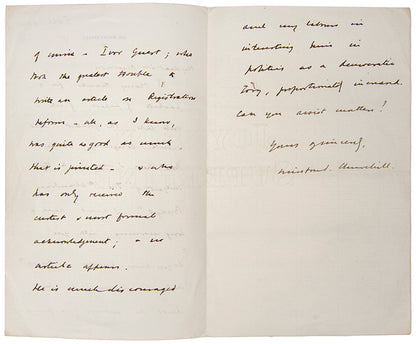 of mine – Ivor Guest; who
took the greatest trouble to
write an article on Registration
reform – wh, as I know,
was quite as good as much
that is printed – & who
has only received the
curtest & most formal
acknowledgement; & no
article appears.
He is much discouraged
and my labours in
interesting him in
politics as a democratic
Tory, proportionately increased.
Can you assist matters?
Yours sincerely,
Winston S. Churchill.